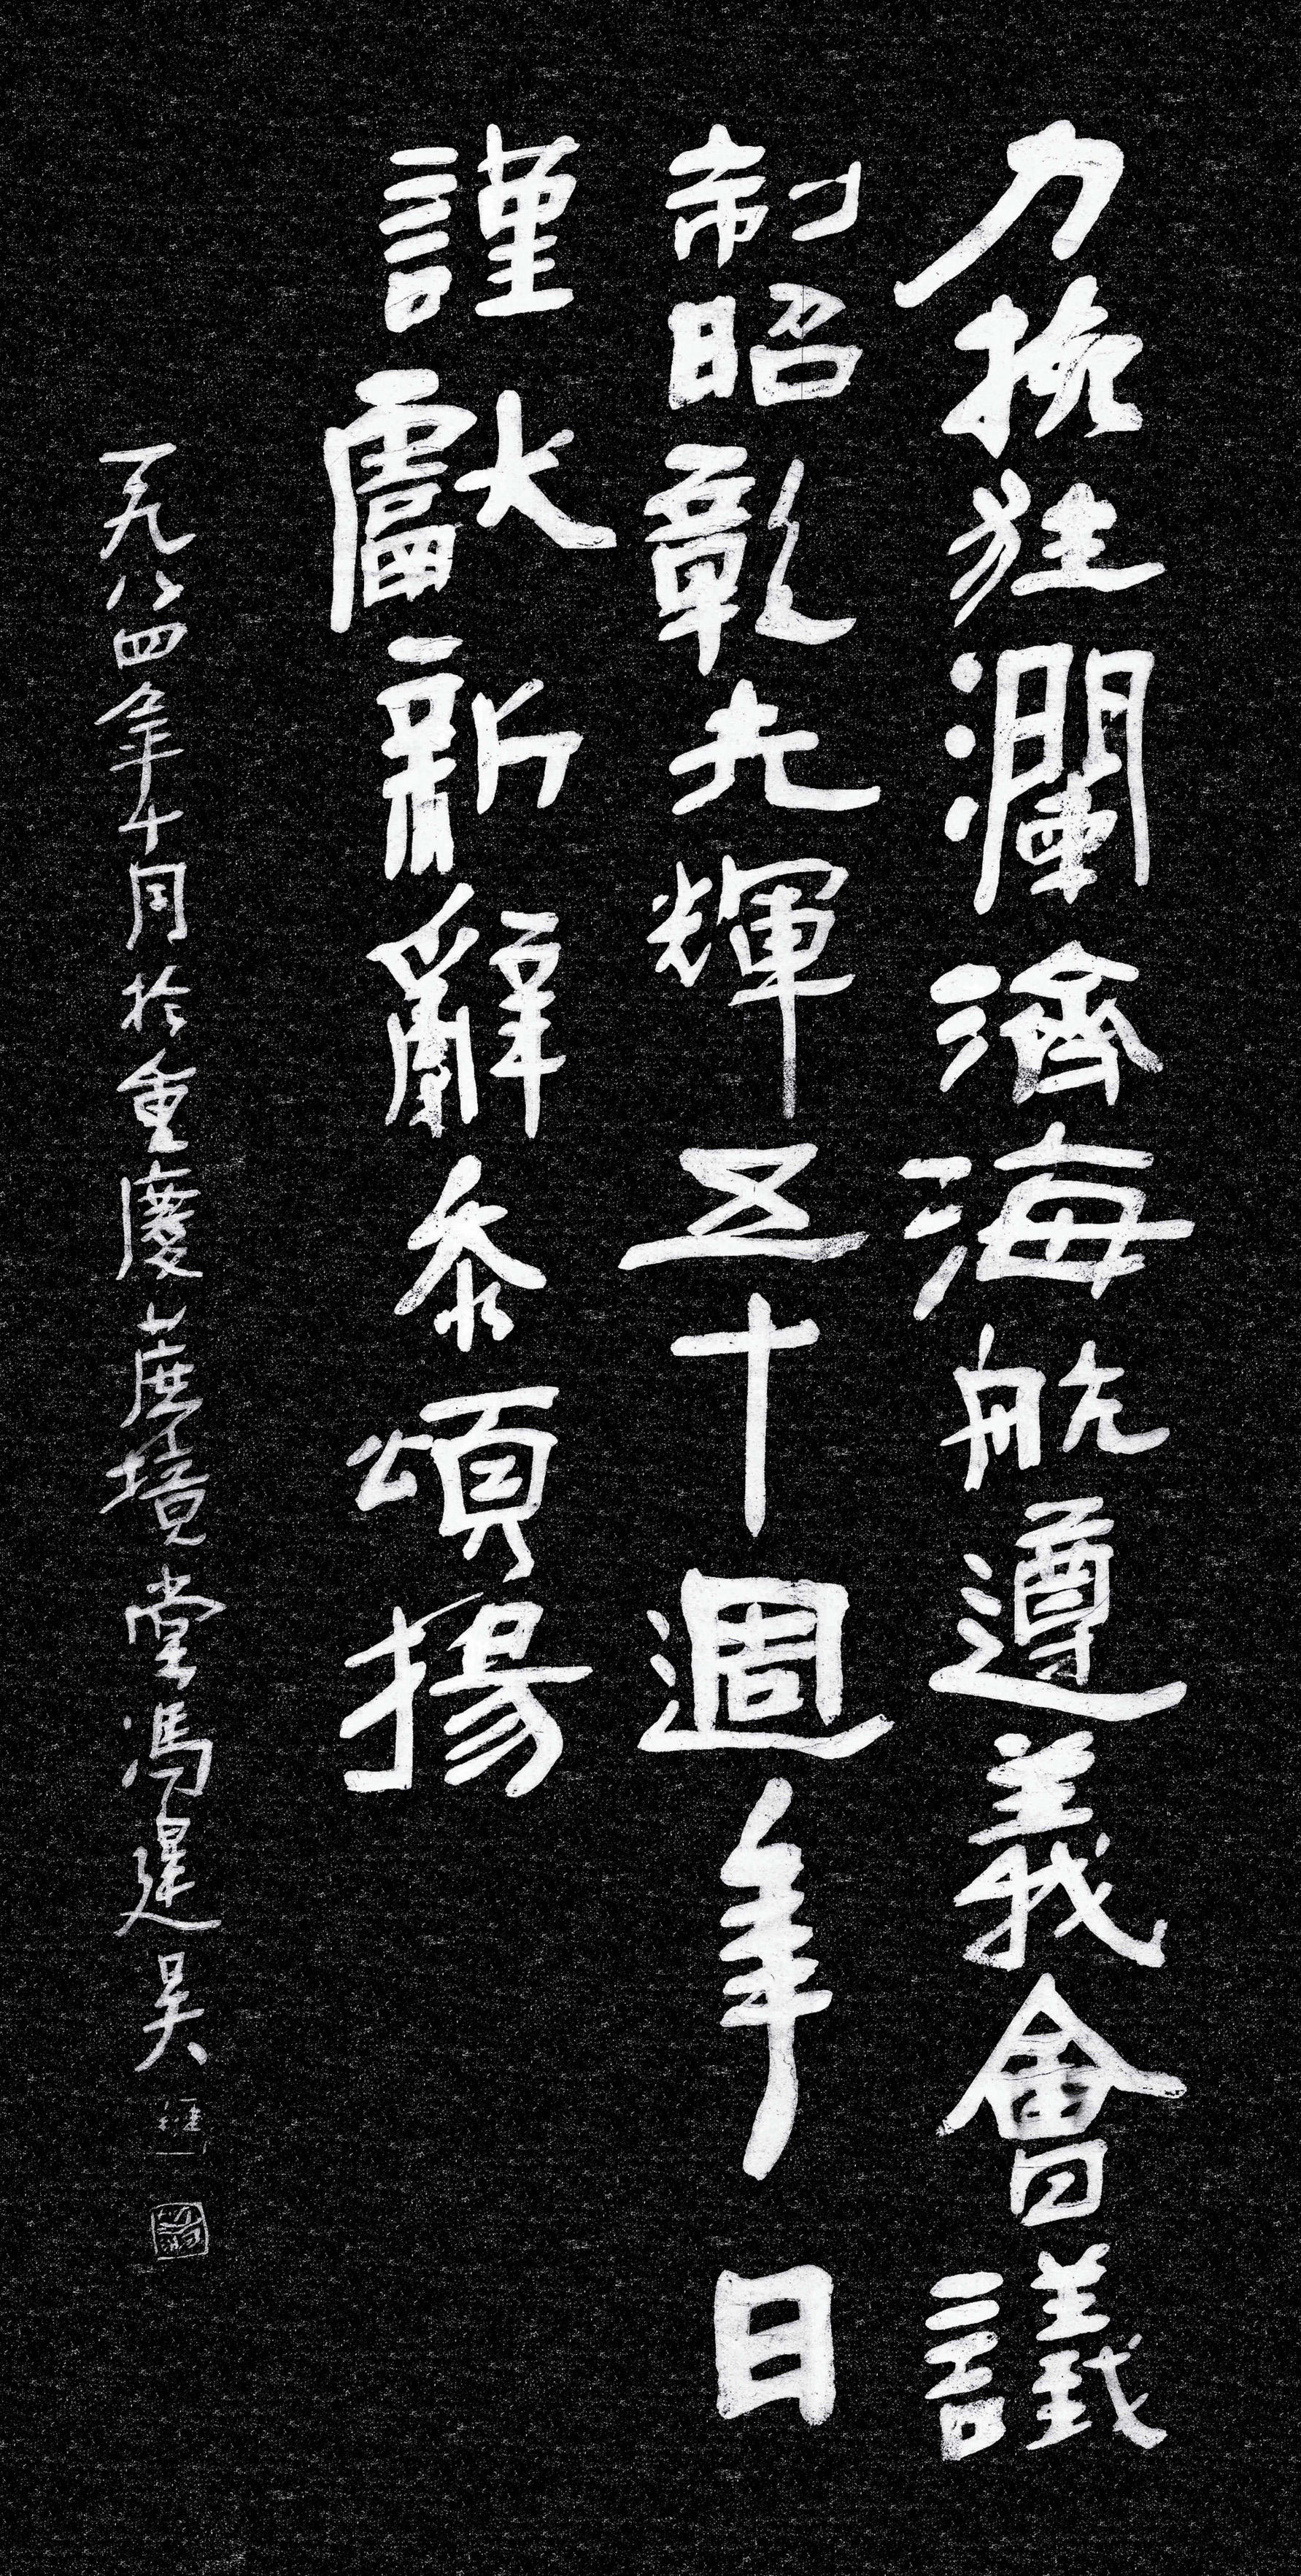 力挽狂瀾濟海航遵義會議
制昭彰光輝五十週年日
謹獻新辭忝頌揚
一九八四年十月於重慶蔗境堂馮建吳